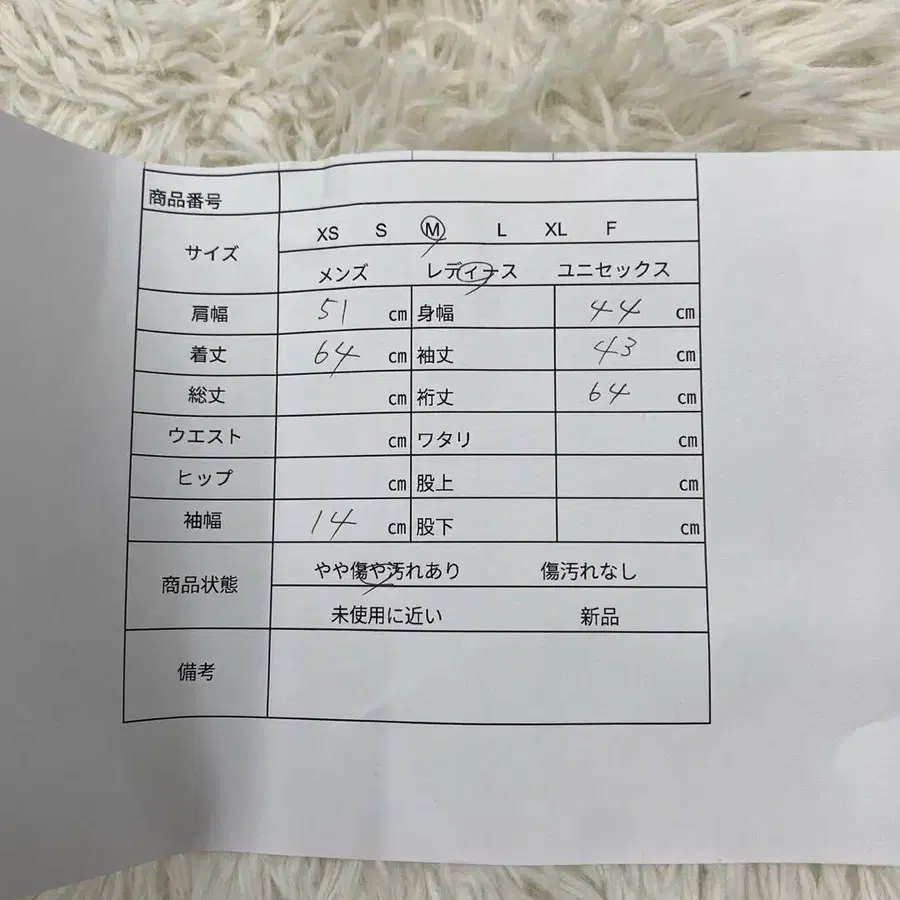 商品番号
サイズ XS S M L XL F
メンズ レディース ユニセックス
肩幅 51 cm 身幅 44 cm
着丈 64 cm 袖丈 43 cm
総丈 cm 裄丈 64 cm
ウエスト cm ワタリ cm
ヒップ cm 股上 cm
袖幅 14 cm 股下 cm
商品状態 やや傷や汚れあり 傷汚れなし
未使用に近い 新品
備考